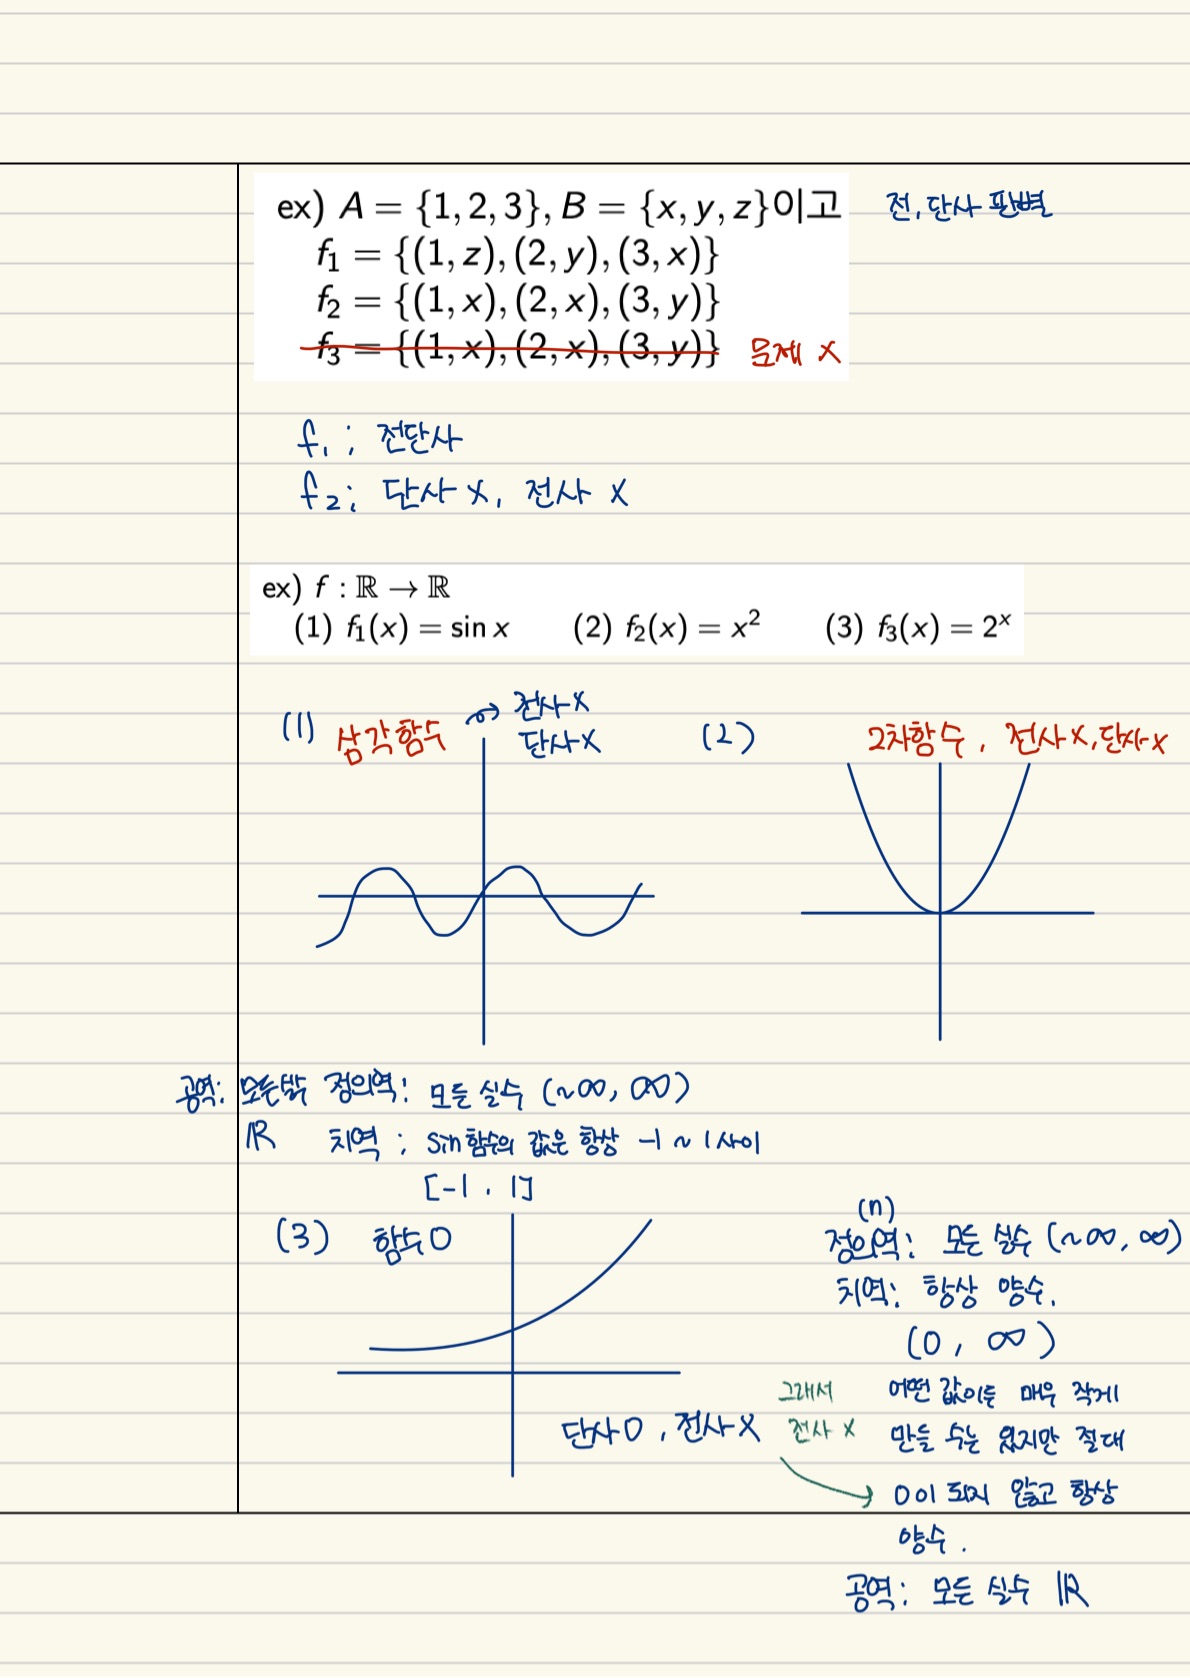 ex) A = {1, 2, 3}, B = {x, y, z}이고 전, 단사 판별
f₁ = {(1, z), (2, y), (3, x)}
f₂ = {(1, x), (2, x), (3, y)}
f₃ = {(1, x), (2, x), (3, y)} 문제 X
f₁ ; 전단사
f₂ ; 단사 X, 전사 X
ex) f : ℝ → ℝ
(1) f₁(x) = sin x (2) f₂(x) = x² (3) f₃(x) = 2ˣ
(1) 삼각함수 → 전사 X
단사 X
(2) 2차함수, 전사 X, 단사 X
공역: 모든 정의역: 모든 실수 (~∞, ∞)
ℝ 치역 ; sin함수의 값은 항상 -1 ~ 1 사이
[-1, 1]
(3) 함수 O
단사 O, 전사 X
(n)
정의역: 모든 실수 (~∞, ∞)
치역: 항상 양수.
(0, ∞)
그래서
전사 X
어떤 값이든 매우 작게
만들 수는 있지만 절대
→ 0이 되지 않고 항상
양수.
공역: 모든 실수 ℝ